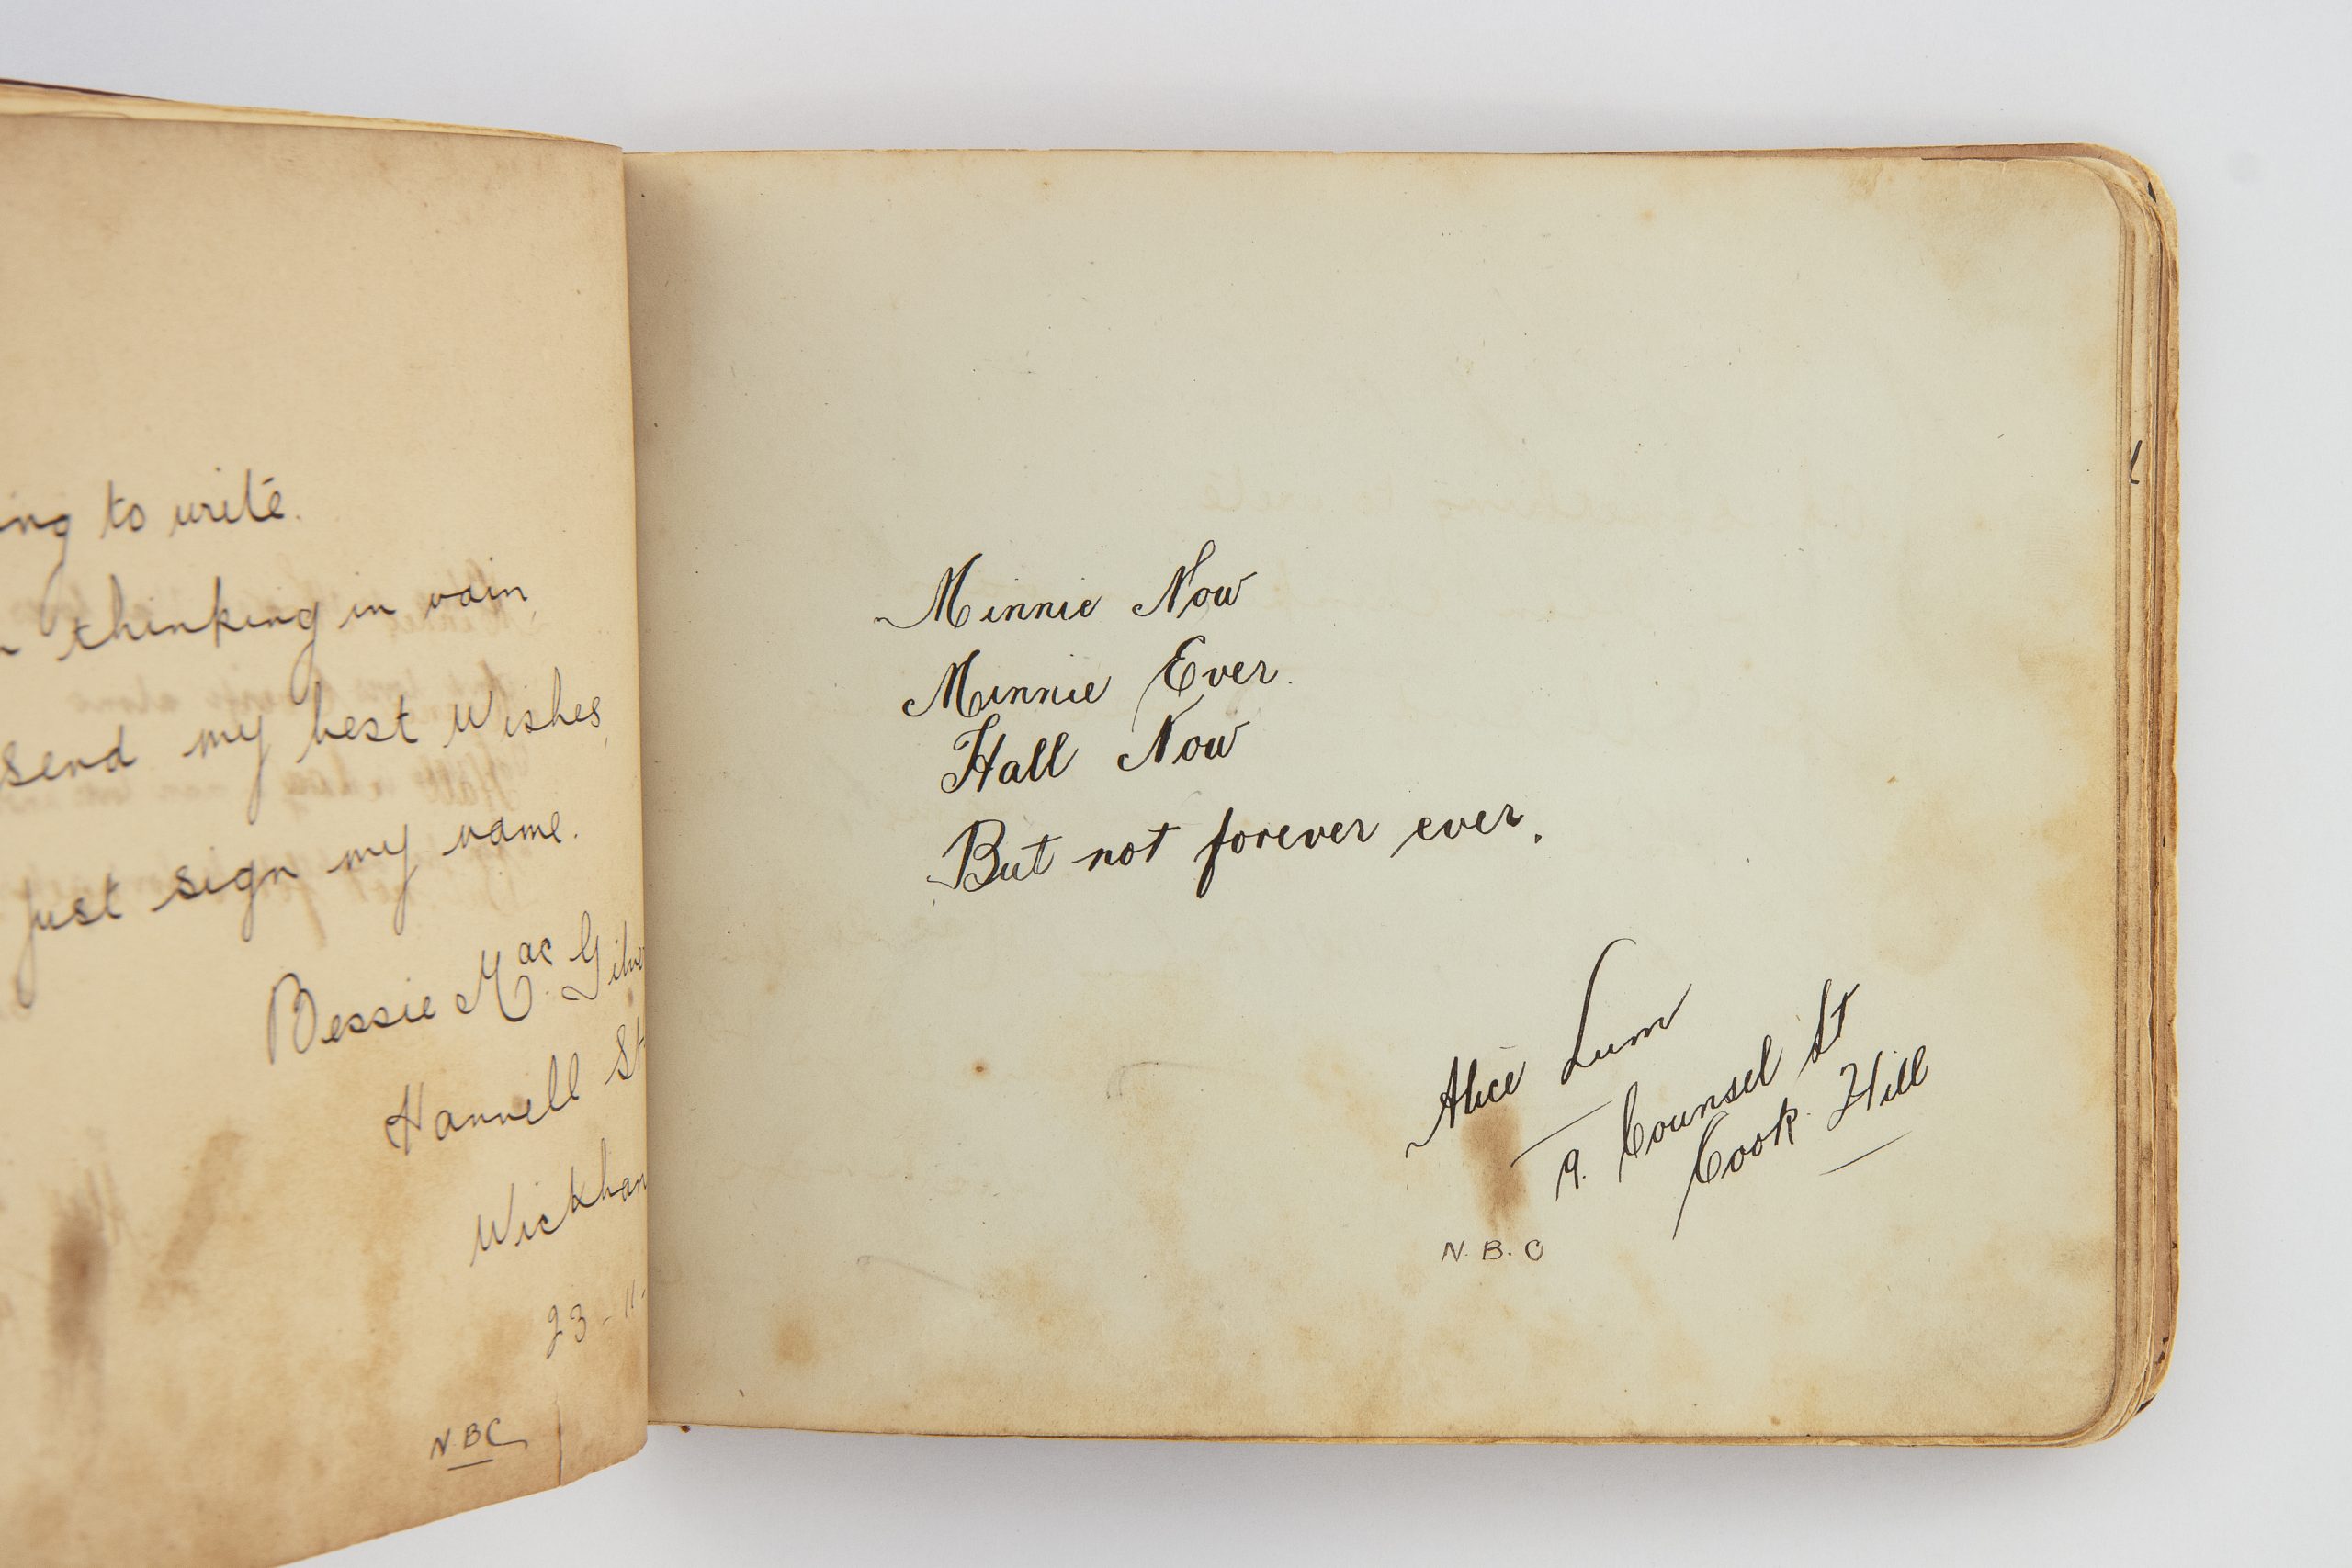 to write.
thinking in vain,
send my best Wishes,
just sign my name.
Bessie Mac
Hannell St
23 - 11 -
N.B.C
Minnie Now
Minnie Ever.
Hall Now
But not forever ever.
Alice Lum
9. Counsel St
Cook Hill
N. B. C